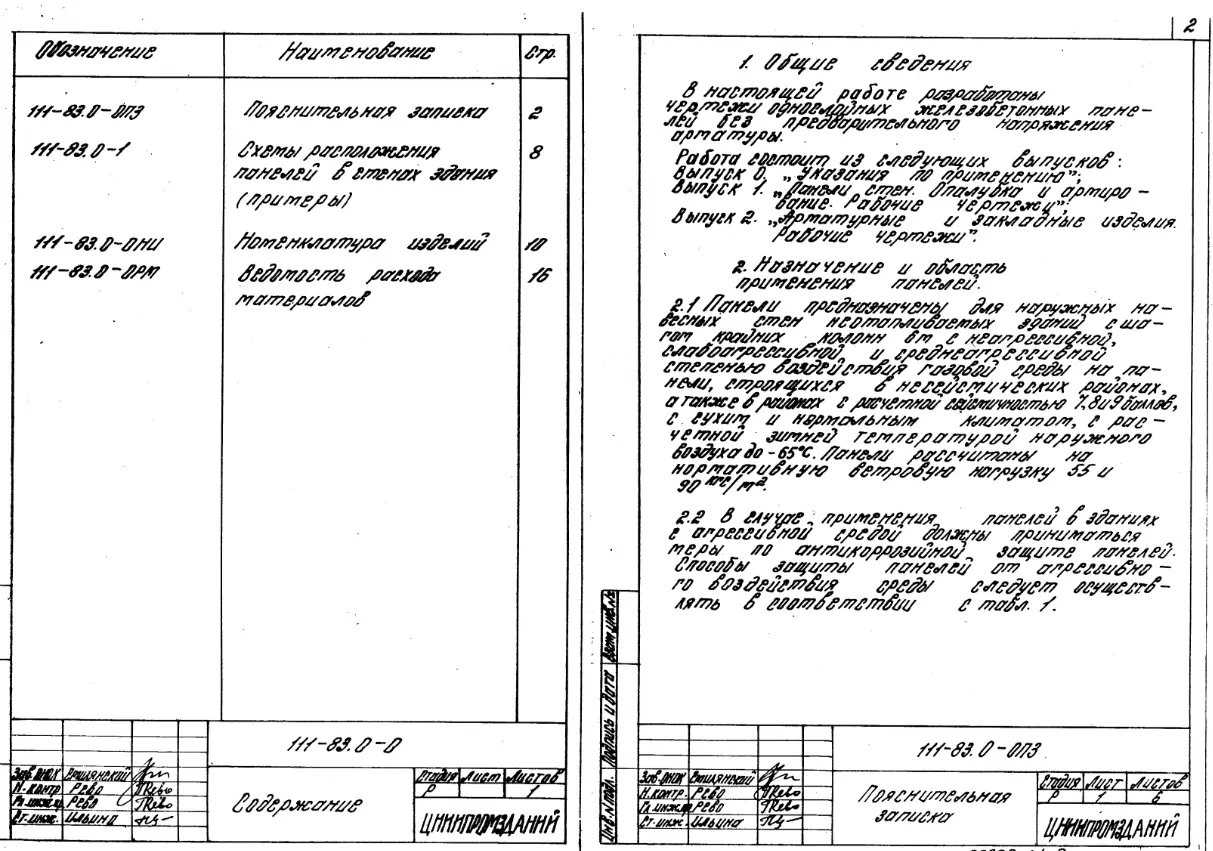 Обозначение Наименование Стр.
111-83.0-ОПЗ Пояснительная записка 2
111-83.0-1 Схемы расположения 8
панелей в стенах здания
(примеры)
111-83.0-ОНИ Номенклатура изделий 10
111-83.0-ОРМ Ведомость расхода 16
материалов
111-83.0-0
Зав.ОНОК
Н.контр. Рево
Гл.инж.пр. Рево
Ст.инж. Ильина
Содержание
Стадия Лист Листов
Р 1
ЦНИИПРОМЗДАНИЙ
2
1. Общие сведения
В настоящей работе разработаны
чертежи однослойных железобетонных пане-
лей без предварительного напряжения
арматуры.
Работа состоит из следующих выпусков:
Выпуск 0. „Указания по применению";
Выпуск 1. „Панели стен. Опалубка и армиро-
вание. Рабочие чертежи";
Выпуск 2. „Арматурные и закладные изделия.
Рабочие чертежи".
2. Назначение и область
применения панелей.
2.1 Панели предназначены для наружных на-
весных стен неотапливаемых зданий с ша-
гом крайних колонн 6м с неагрессивной,
слабоагрессивной и среднеагрессивной
степенью воздействия газовой среды на па-
нели, строящихся в несейсмических районах,
а также в районах с расчетной сейсмичностью 7,8и9 баллов,
с сухим и нормальным климатом, с рас-
четной зимней температурой наружного
воздуха до -65°С. Панели рассчитаны на
нормативную ветровую нагрузку 55 и
90 кгс/м².
2.2 В случае применения панелей в зданиях
с агрессивной средой должны приниматься
меры по антикоррозийной защите панелей.
Способы защиты панелей от агрессивно-
го воздействия среды следует осуществ-
лять в соответствии с табл. 1.
Инв.№ подл. Подпись и дата Взам.инв.№
111-83.0-ОПЗ
Зав.ОНОК
Н.контр. Рево
Гл.инж.пр. Рево
Ст.инж. Ильина
Пояснительная
записка
Стадия Лист Листов
Р 1 6
ЦНИИПРОМЗДАНИЙ